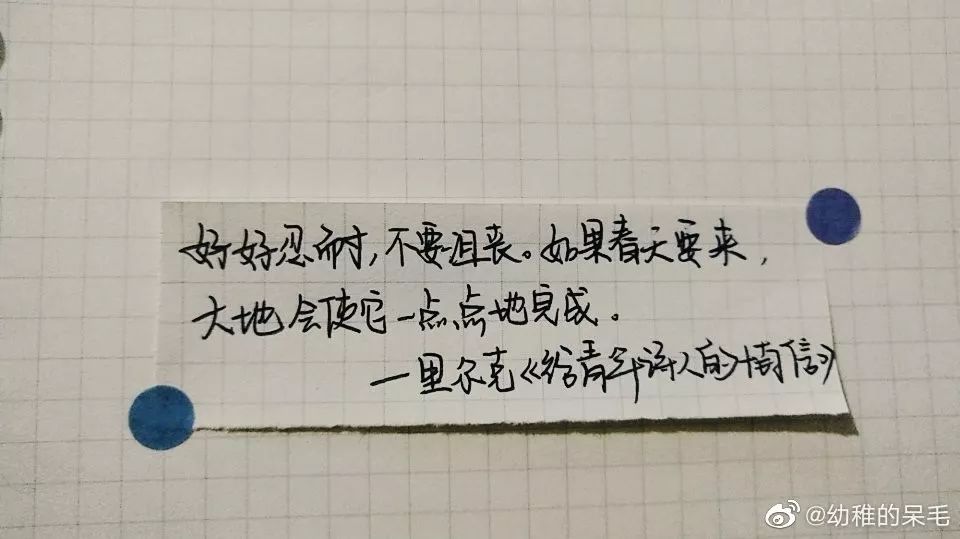 好好忍耐,不要沮丧。如果春天要来,
大地会使它一点点地完成。
—里尔克《给青年诗人的情信》
@幼稚的呆毛